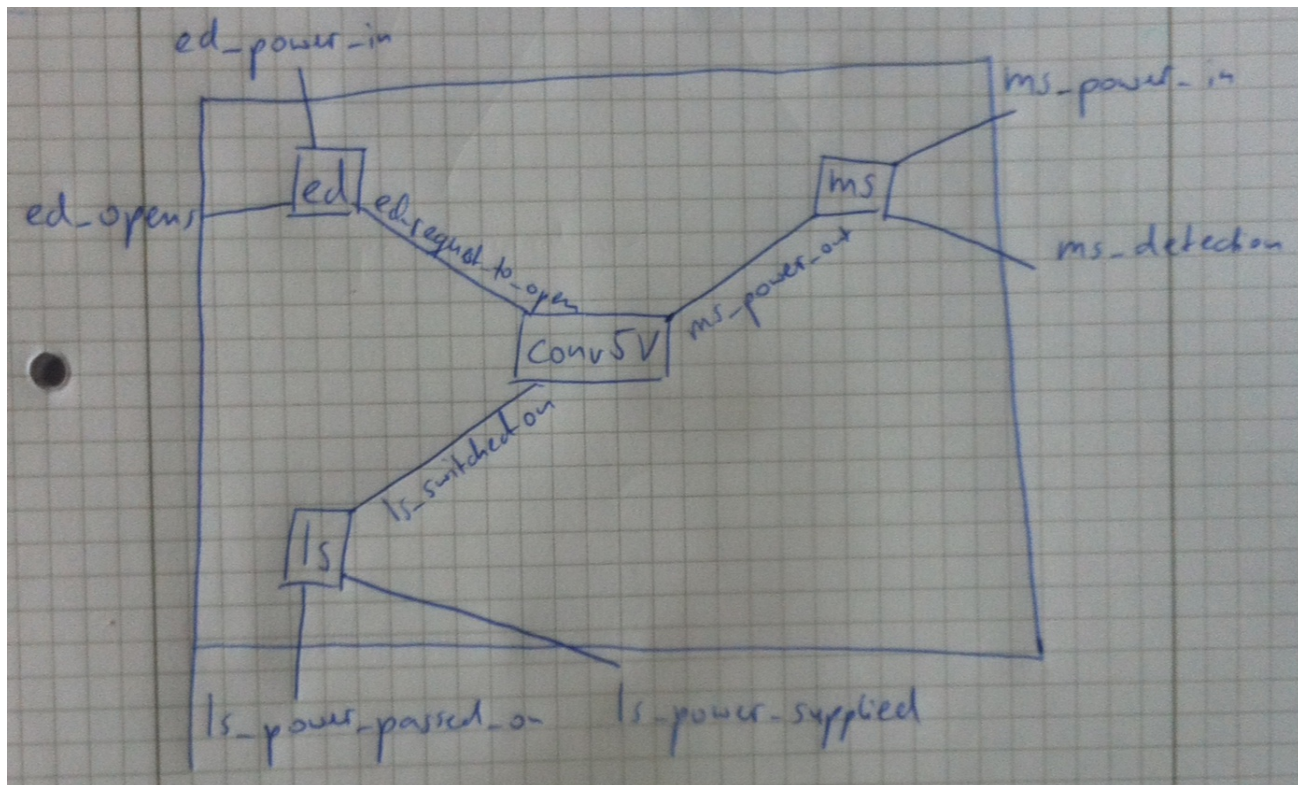 ed_power_in
ms_power_in
ed
ms
ed_opens
ed_request_to_open
ms_power_out
ms_detection
Conv5V
ls_switched on
ls
ls_power_passed_on
ls_power_supplied